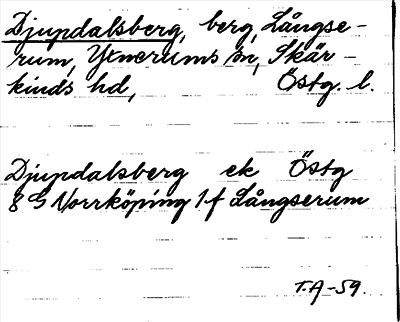 Djupdalsberg, berg, Långse-
rum, Yxnerums sn, Skär-
kinds hd, Östg. l.
Djupdalsberg ek Östg
8 G Norrköping 1 f Långserum
T.A-59.